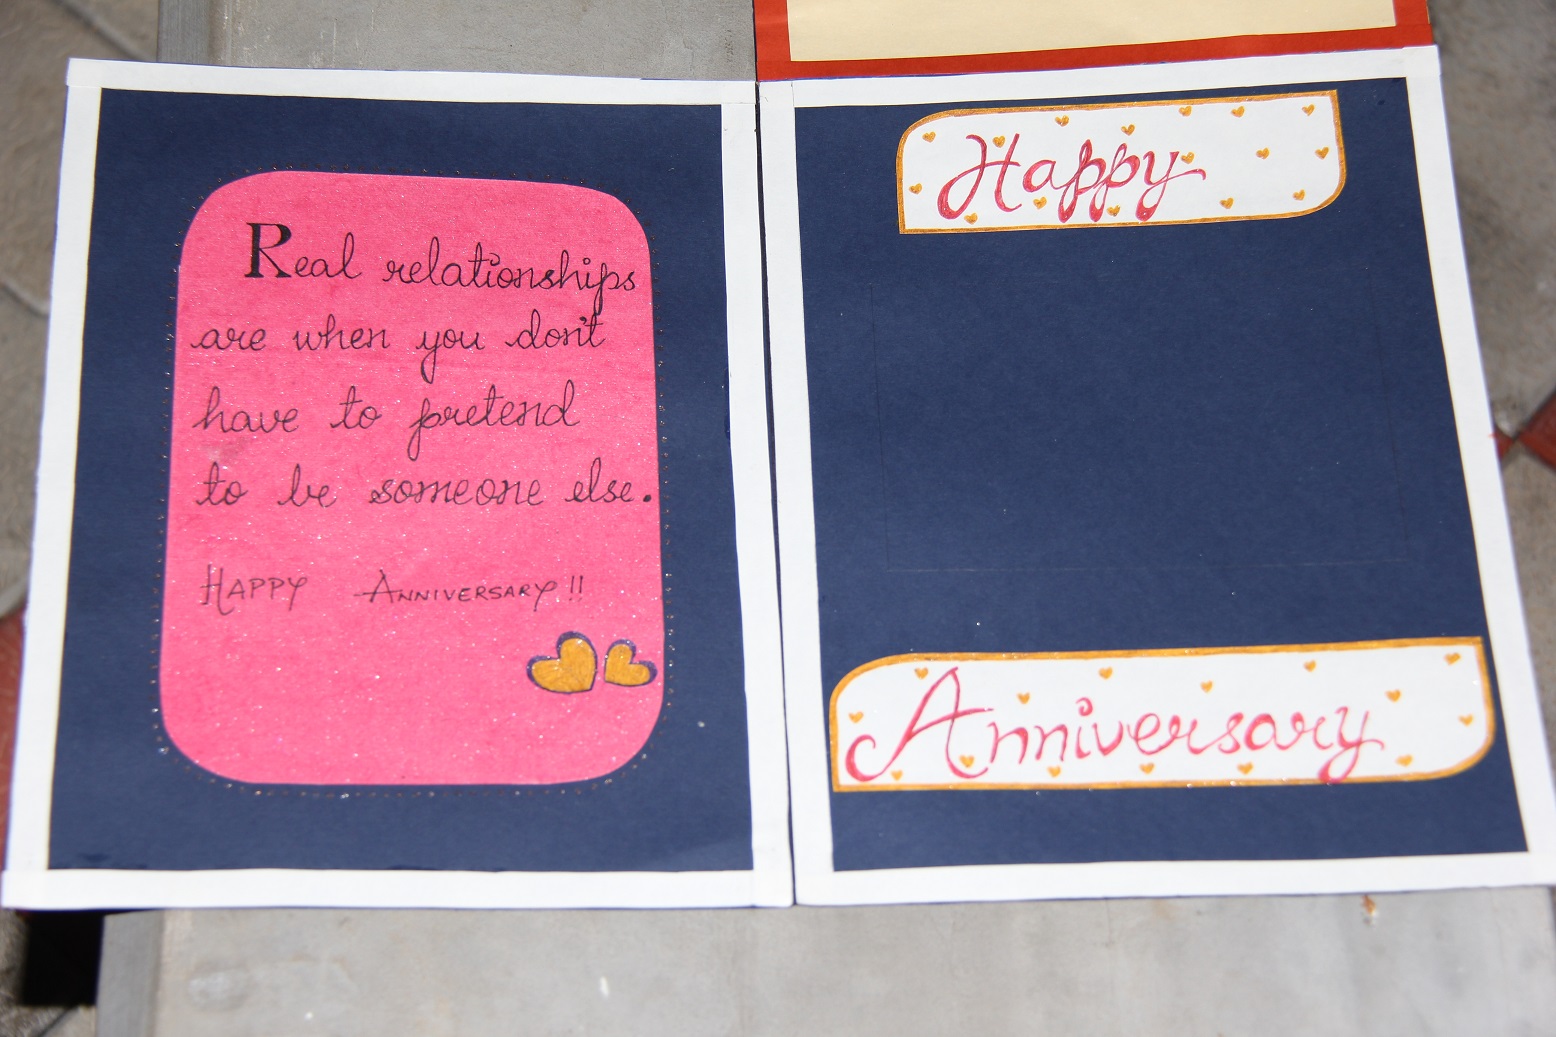 Real relationships
are when you don't
have to pretend
to be someone else.
HAPPY ANNIVERSARY!!
Happy
Anniversary